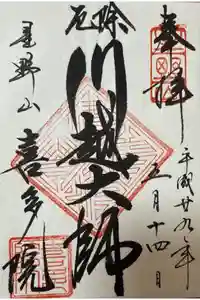 奉拝
平成廿九年
三月十四日
厄除
川越大師
星野山
喜多院